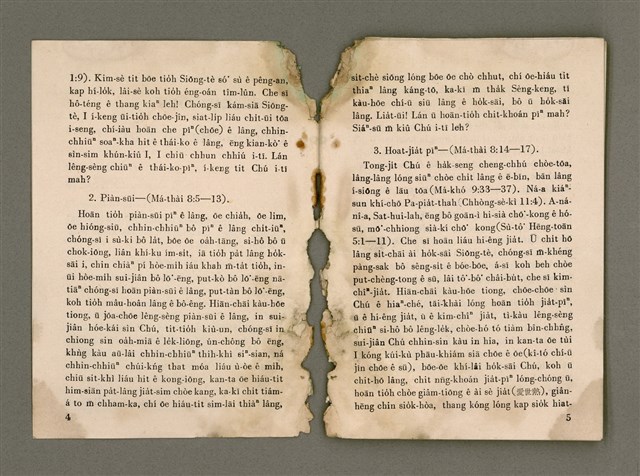 1:9). Kim-sè tit bōe tio̍h Siōng-tè só͘ sù ê pêng-an,
kap hí-lo̍k, lâi-sè koh tio̍h éng-oán tîm-lûn. Che sī
hô-téng ê thang kiaⁿ leh! Chóng-sī kám-siā Siōng-
tè, I í-keng ūi-tio̍h chōe-jîn, siat-li̍p liáu chi̍t-ūi tōa
i-seng, chí-iàu hoān che pīⁿ(chōe) ê lâng, chhin-
chhiūⁿ soaⁿ-kha hit ê thái-ko ê lâng, éng kian-kò͘ ê
sìn-sim khún-kiû I, I chiū chhun chhiú i-tī. Lán
lêng-sèng chiūⁿ ê thái-ko-pīⁿ, í-keng tit Chú i-tī
mah?
2. Piàn-sūi—(Má-thài 8:5—13).
Hoān tio̍h piàn-sūi pīⁿ ê lâng, ōe chia̍h, ōe lim,
ōe hióng-siū, chhin-chhiūⁿ bô pīⁿ ê lâng chi̍t-iūⁿ,
chóng-sī i sù-ki bô la̍t, bōe ōe oa̍h-tāng, si-hô bô ū
chok-iōng, liân khí-ku im-sit, iā tio̍h pa̍t lâng ho̍k-
sāi i, chin chiàⁿ pí hòe-mih iáu khah m̄-ta̍t tio̍h, in-
ūi hòe-mih sui-jiân bô lō͘-ēng, put-kò bô lō͘-ēng nā-
tiāⁿ chóng-sī hoān piàn-sūi ê lâng, put-tàn bô lō͘-ēng,
koh tio̍h máu-hoân lâng ê bô-êng. Hiān-chāi kàu-hōe
tiong, ū jōa-chōe lêng-sèng piàn-sūi ê lâng, in sui-
jiân hóe-kái sìn Chú, tit-tio̍h kiù-un, chóng-sī in
chiong sin oa̍h-miā ê le̍k-liōng, ún-chông bô ēng,
khǹg kàu aū-lâi chhin-chhiūⁿ thih-khì siⁿ-sian, ná
chhin-chhiūⁿ chúi-kńg that móa liáu ù-òe ê mih,
chiū sit-khì liáu hit ê kong-iōng, kan-ta ōe hiáu-tit
him-siān pa̍t-lâng jia̍t-sim chòe kang, ka-kī chi̍t tiám-
á to m̄ chham-ka, chí ōe hiáu-tit sim-lāi thiàⁿ lâng,
4
si̍t-chè siōng lóng bōe ōe chò chhut, chí ōe-hiáu tit
thiaⁿ lâng káng-tō, ka-kī m̄ tha̍k Sèng-keng, tī
kàu-hōe chí-ū siū lâng ê ho̍k-sāi, bô ū ho̍k-sāi
lâng. Lia̍t-ūi! Lán ū hoān-tio̍h chit-khoán pīⁿ mah?
Siáⁿ-sū m̄ kiû Chú i-tī leh?
3. Hoat-jia̍t pīⁿ—(Má-thài 8:14—17).
Tong-ji̍t Chú ê ha̍k-seng cheng-chhú chòe-tōa,
lâng-lâng lóng siūⁿ chòe chi̍t lâng ê ē-bīn, bān lâng
í-siōng ê lāu tōa(Má-khó 9:33—37). Ná-a kiáⁿ-
sun khí-chō Pa-pia̍t-thah(Chhòng-sè-kì 11:4). A-ná-
nî-a, Sat-hui-lah, ēng bô goān-ì hi-siā chō͘-kong ê hó-
sū, mō͘-chhiong siā-kì chō͘ kong(Sù-tô͘ Hēng-toān
5:1—11). Che sī hoān liáu hi-êng jia̍t. Ū chi̍t hō
lâng si̍t-chāi ài ho̍k-sāi Siōng-tè, chóng-sī m̄-khéng
pàng-sak bô sêng-si̍t ê bōe-bōe, á-sī koh beh chòe
put-chèng-tong ê sū, lâi tit-tio̍h chò͘ châi-bu̍t, che sī kim-
chîⁿ-jia̍t. Hiān-chāi kàu-hōe tiong, chōe-chōe sìn
Chú ê hiaⁿ-ché, tāi-khài lóng hoān tio̍h jia̍t-pīⁿ,
ū ê hi-êng jia̍t, ū ê kim-chîⁿ jia̍t, tì-kàu lêng-sèng
chiūⁿ si-hô bô lêng-le̍k, chòe-hó tó tiàm bîn-chhn̂g,
sui-jiân Chú chhin-sin kàu in hia, in kan-ta ōe tùi
I kóng kúi-kù phāu-khiâm siā chōe ê ōe(kî-tó chí-ū
jīn chōe ê sū), bōe-ōe khí-lâi ho̍k-sāi Chú, koh ū
chi̍t-hō lâng, chi̍t nn̄g-khoán jia̍t-pīⁿ lóng-chóng ū,
hoān tio̍h chòe giâm-tiōng ê ài sè jia̍t(愛世熱), giân-
hēng chin sio̍k-hòa, thang kóng lóng kap sio̍k hiat-
5